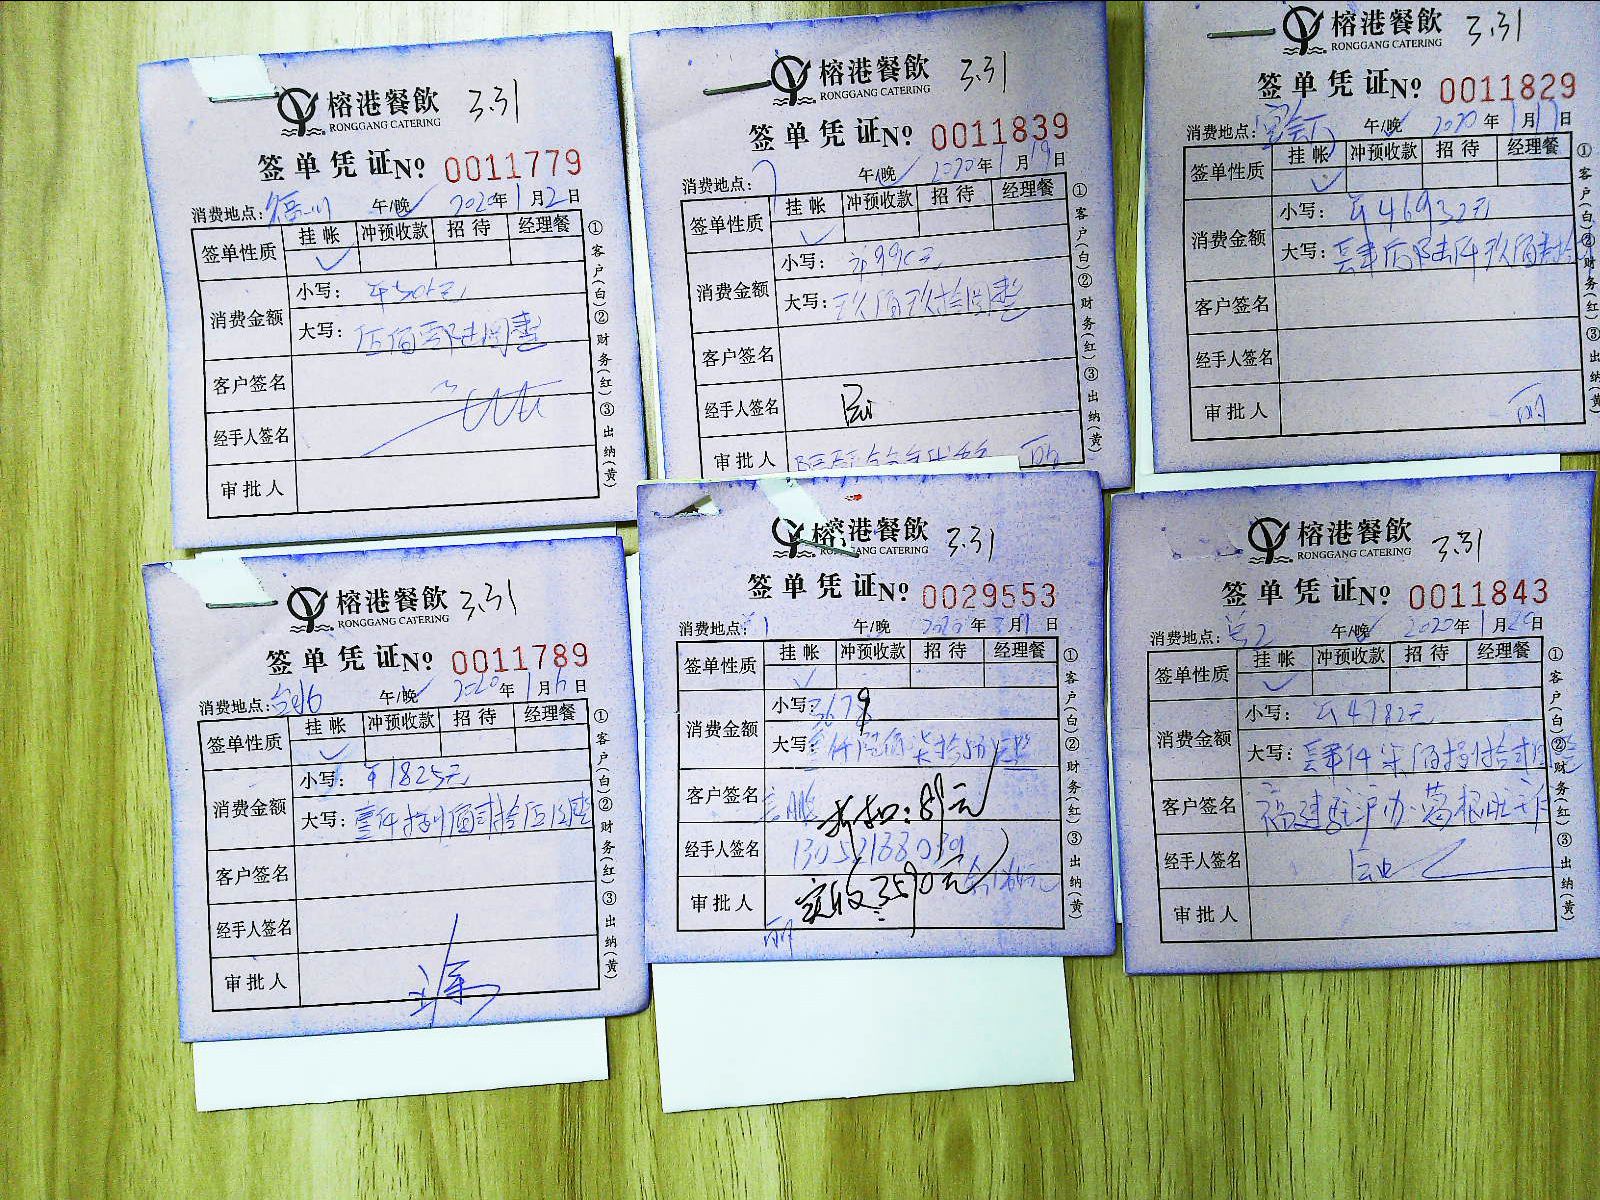 榕港餐飲 3.31
RONGGANG CATERING
签单凭证No 0011779
消费地点: 午/晚 2020年1月2日
签单性质 挂帐 冲预收款 招待 经理餐
消费金额
小写:
大写: 伍佰零陆圆整
客户签名
经手人签名
审批人
①客户(白)②财务(红)③出纳(黄)
榕港餐飲 3.31
RONGGANG CATERING
签单凭证No 0011839
消费地点: 午/晚 2020年1月19日
签单性质 挂帐 冲预收款 招待 经理餐
消费金额
小写: 990元
大写: 玖佰玖拾圆整
客户签名
经手人签名
审批人
①客户(白)②财务(红)③出纳(黄)
榕港餐飲 3.31
RONGGANG CATERING
签单凭证No 0011829
消费地点: 午/晚 2020年1月17日
签单性质 挂帐 冲预收款 招待 经理餐
消费金额
小写: 46932元
大写:
客户签名
经手人签名
审批人 丽
①客户(白)②财务(红)③出纳(黄)
榕港餐飲 3.31
RONGGANG CATERING
签单凭证No 0011789
消费地点: 午/晚 2020年1月6日
签单性质 挂帐 冲预收款 招待 经理餐
消费金额
小写: ¥1825元
大写: 壹仟捌佰贰拾伍圆整
客户签名
经手人签名
审批人
①客户(白)②财务(红)③出纳(黄)
榕港餐飲 3.31
RONGGANG CATERING
签单凭证No 0029553
消费地点: 午/晚 2020年3月1日
签单性质 挂帐 冲预收款 招待 经理餐
消费金额
小写: 3679
大写:
客户签名 折扣:89元
经手人签名
审批人 实收:3590元
丽
①客户(白)②财务(红)③出纳(黄)
榕港餐飲 3.31
RONGGANG CATERING
签单凭证No 0011843
消费地点: 午/晚 2020年1月20日
签单性质 挂帐 冲预收款 招待 经理餐
消费金额
小写: ¥4782元
大写: 肆仟柒佰捌拾贰圆整
客户签名 福建驻沪办
经手人签名
审批人
①客户(白)②财务(红)③出纳(黄)